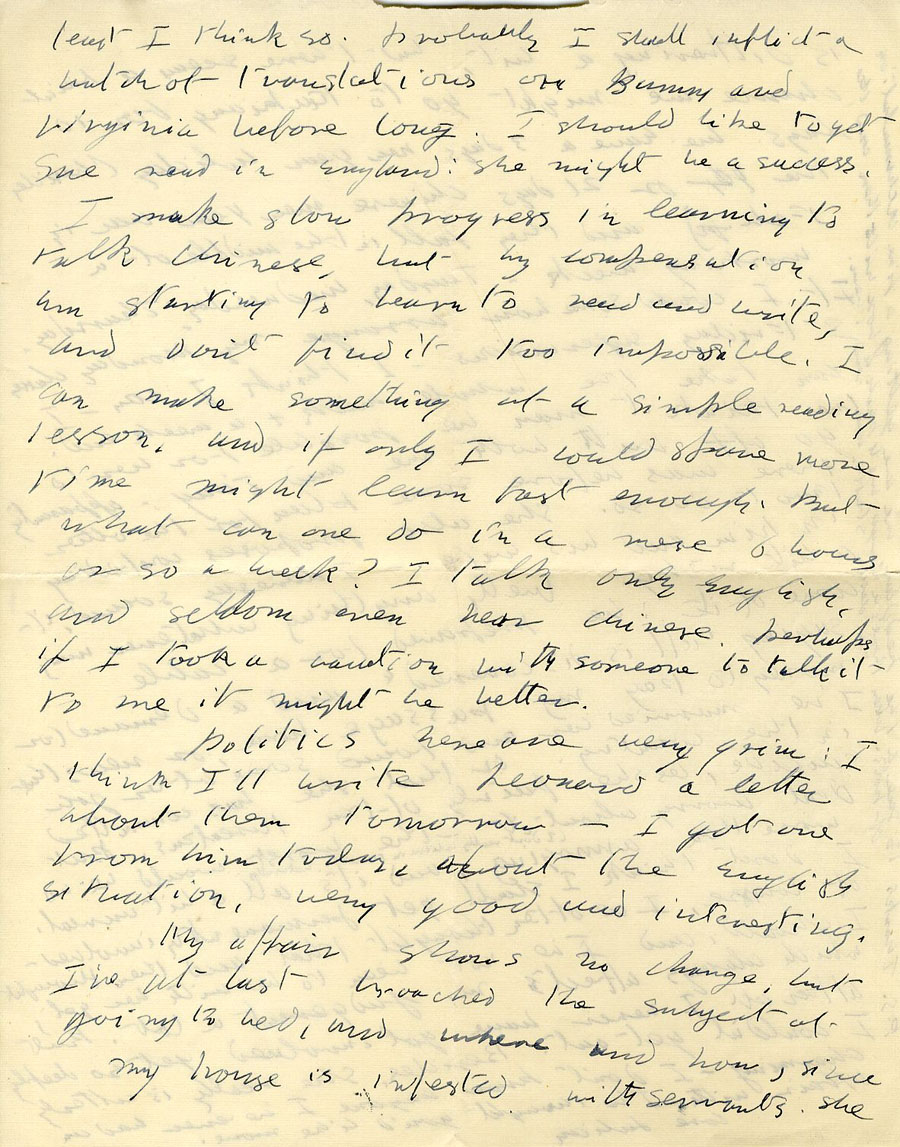 least I think so. Probably I shall inflict a
batch of translations on Bunny and
Virginia before long. I should like to get
Sue read in England: she might be a success.
I make slow progress in learning to
talk Chinese, but by compensation
am starting to learn to read and write,
and don't find it too impossible. I
can make something of a simple reading
lesson, and if only I could spare more
time might learn fast enough. But
what can one do in a mere 6 hours
or so a week? I talk only English,
and seldom even hear Chinese. Perhaps
if I took a vacation with someone to talk it
to me it might be better.
Politics here are very grim: I
think I'll write Leonard a letter
about them tomorrow — I got one
from him today, about the English
situation, very good and interesting.
My affair shows no change, but
I've at last broached the subject of
going to bed, and where and how, since
my house is infested with servants. She